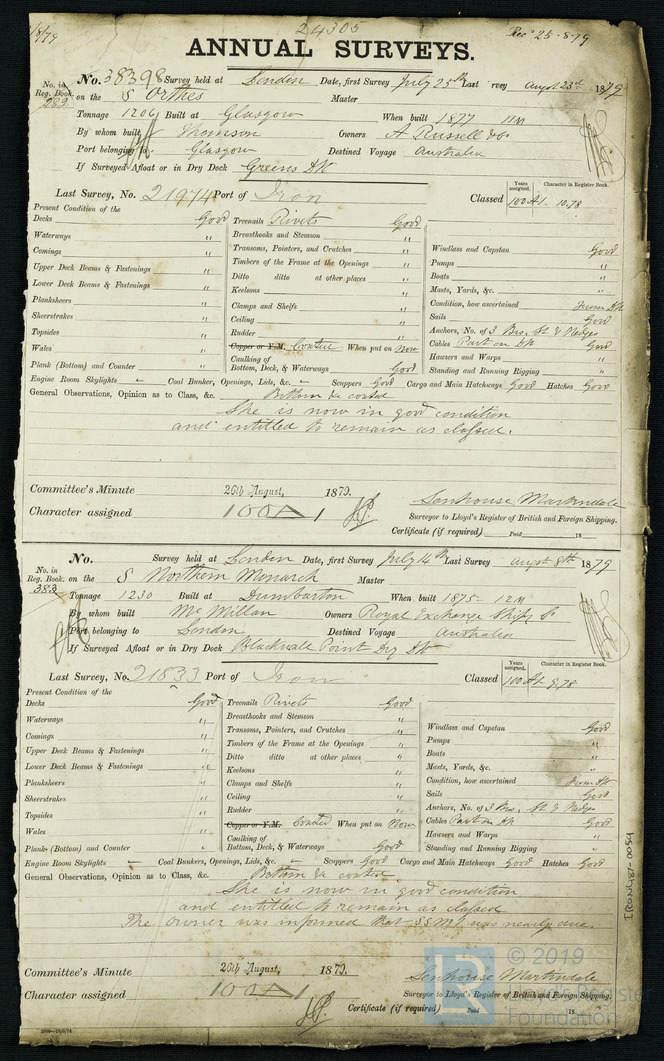 24305
1/8/79
Recd 25.8.79
ANNUAL SURVEYS.
No. in Reg. Book. 282
No. 38398 Survey held at London Date, first Survey July 25th Last Survey Augst 23rd 1879
on the S Orthes Master
Tonnage 1206 Built at Glasgow When built 1877 11M
By whom built Thomson Owners A Russell & Co
Port belonging to Glasgow Destined Voyage Australia
If Surveyed Afloat or in Dry Dock Greens Dk
Last Survey, No. 21974 Port of Iron
Classed
Years assigned. Character in Register Book.
100A1. 10,78
Present Condition of the
Decks Good
Waterways "
Comings "
Upper Deck Beams & Fastenings "
Lower Deck Beams & Fastenings "
Planksheers "
Sheerstrakes "
Topsides "
Wales "
Plank (Bottom) and Counter "
Treenails Rivets Good
Breasthooks and Stemson "
Transoms, Pointers, and Crutches "
Timbers of the Frame at the Openings "
Ditto ditto at other places "
Keelsons "
Clamps and Shelfs "
Ceiling "
Rudder "
Copper or Y.M. Coated When put on Now
Caulking of Bottom, Deck, & Waterways Good
Windlass and Capstan Good
Pumps "
Boats "
Masts, Yards, &c. "
Condition, how ascertained From Dk
Sails Good
Anchors, No. of 3 Brs, St & Kedges
Cables Part on Dk Good
Hawsers and Warps "
Standing and Running Rigging "
Engine Room Skylights - Coal Bunker, Openings, Lids, &c. - Scuppers Good Cargo and Main Hatchways Good Hatches Good
General Observations, Opinion as to Class, &c. Bottom re coated
She is now in good condition
and entitled to remain as classed.
Committee's Minute 26th August, 1879.
Character assigned 100A1
Senhouse Martindale
Surveyor to Lloyd's Register of British and Foreign Shipping.
Certificate (if required) Paid 18
No. in Reg. Book. 383
No. Survey held at London Date, first Survey July 14th Last Survey Augst 8th 1879
on the S Northern Monarch Master
Tonnage 1230 Built at Dumbarton When built 1875 - 12M
By whom built McMillan Owners Royal Exchange Shipg Co
Port belonging to London Destined Voyage Australia
If Surveyed Afloat or in Dry Dock Blackwall Point Dry Dk
Last Survey, No. 21833 Port of Iron
Classed
Years assigned. Character in Register Book.
100A1. 9,78
Present Condition of the
Decks Good
Waterways "
Comings "
Upper Deck Beams & Fastenings "
Lower Deck Beams & Fastenings "
Planksheers "
Sheerstrakes "
Topsides "
Wales "
Planks (Bottom) and Counter "
Treenails Rivets Good
Breasthooks and Stemson "
Transoms, Pointers, and Crutches "
Timbers of the Frame at the Openings "
Ditto ditto at other places "
Keelsons "
Clamps and Shelfs "
Ceiling "
Rudder "
Copper or Y.M. Coated When put on Now
Caulking of Bottom, Deck, & Waterways Good
Windlass and Capstan Good
Pumps "
Boats "
Masts, Yards, &c. "
Condition, how ascertained From Dk
Sails Good
Anchors, No. of 3 Brs, St & Kedges
Cables Part on Dk Good
Hawsers and Warps "
Standing and Running Rigging "
Engine Room Skylights - Coal Bunkers, Openings, Lids, &c. - Scuppers Good Cargo and Main Hatchways Good Hatches Good
General Observations, Opinion as to Class, &c. Bottom re coated
She is now in good condition
and entitled to remain as classed
The owner was informed that SSNo1 was nearly due.
Committee's Minute 26th August, 1879.
Character assigned 100A1
Senhouse Martindale
Surveyor to Lloyd's Register of British and Foreign Shipping.
Certificate (if required) Paid 18
IRON487-0054
© 2019
Lloyd's Register
Foundation